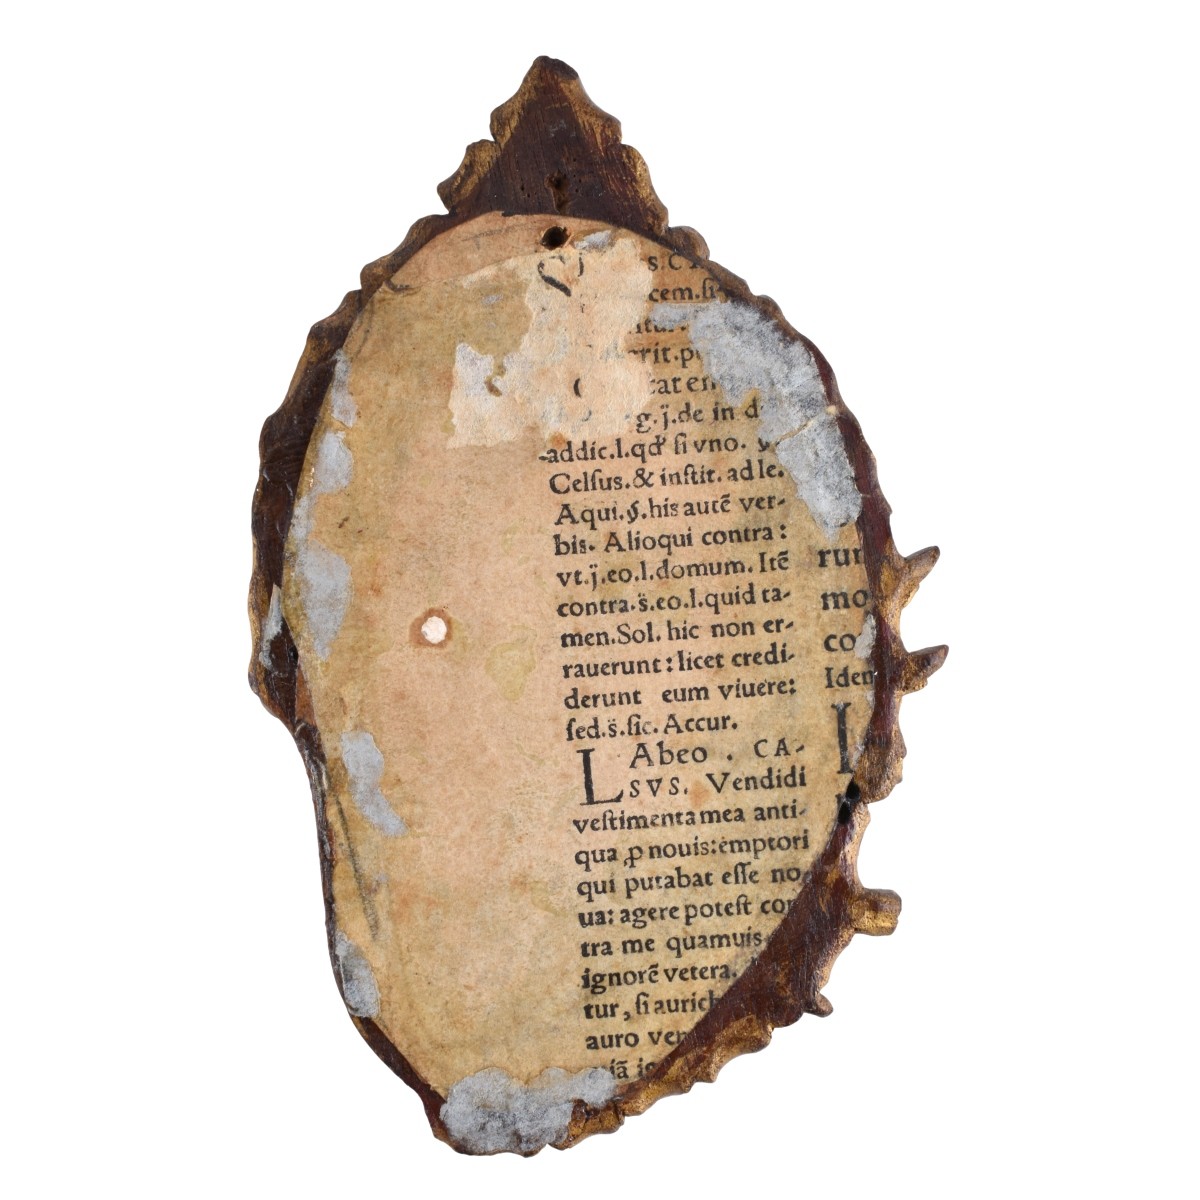 s.C
cem.ſi
rit.p
tat en
g.ÿ.de in d
addic.l.qđ ſi vno. y
Celſus.& inſtit. ad le.
Aqui.§.his autē ver-
bis. Alioqui contra:
vt.ÿ.eo.l.domum. Itē
contra.s̈.eo.l.quid ta-
men.Sol. hic non er-
rauerunt: licet credi-
derunt eum viuere:
ſed.s̈.ſic. Accur.
LAbeo . CA-
SVS. Vendidi
veſtimenta mea anti-
qua ꝓ nouis: emptori
qui putabat eſſe no
ua: agere poteſt con
tra me quamuis
ignorē vetera.
tur, ſi aurich
auro ven
uiā ig
rum
mo
co
Iden
L